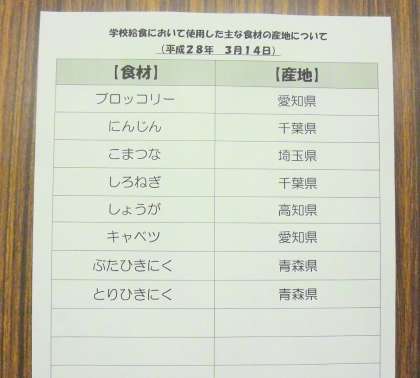 学校給食において使用した主な食材の産地について
（平成２８年　３月１４日）
【食材】　【産地】
ブロッコリー　愛知県
にんじん　千葉県
こまつな　埼玉県
しろねぎ　千葉県
しょうが　高知県
キャベツ　愛知県
ぶたひきにく　青森県
とりひきにく　青森県